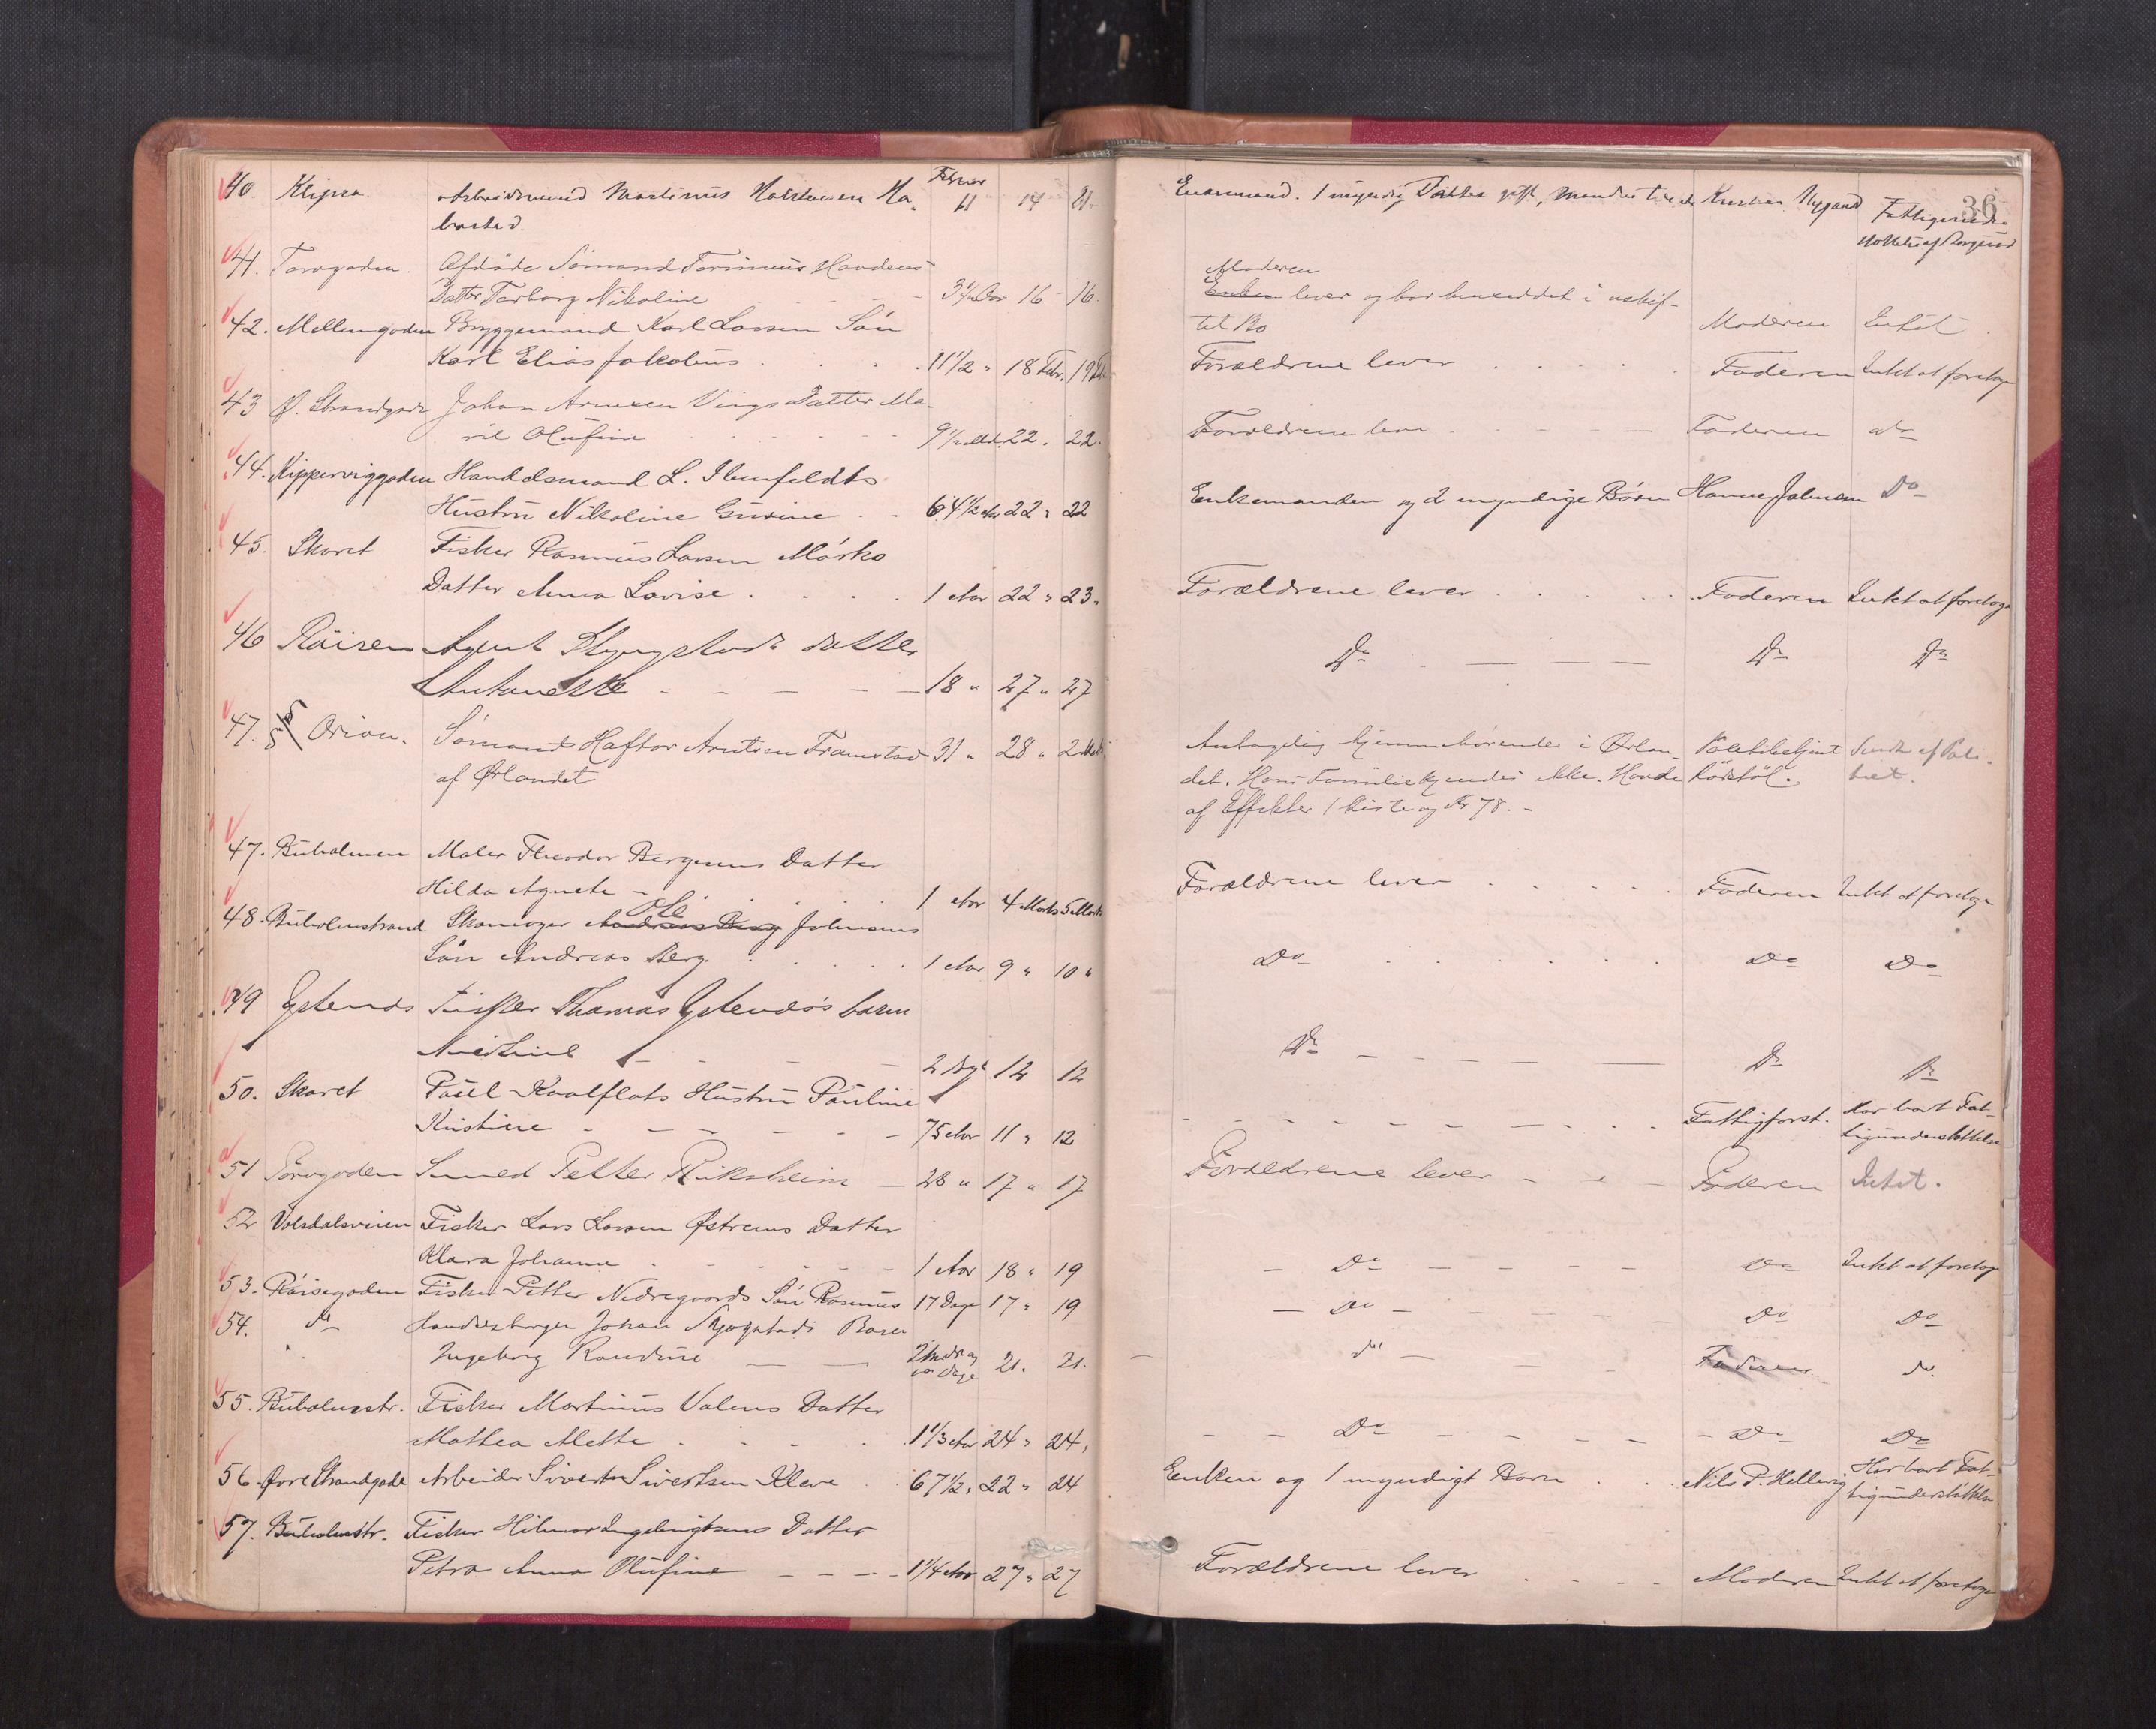 36
Februar
40. Klipra Arbeidsmand Martinus Ha-
11 14 21
Enkemand. 1 myndig Datter gift, Kristian Nygaard Fattigunder-
støttelse af Borgund
41. Torvgaden Afdøde Sømand
Moderen
Datter Torborg Nikoline 3½ Aar 16 16
Enken lever og har hensiddet i uskif-
tet Bo Moderen Intet
42. Mellemgaden Bryggemand Karl Larsen Søn
Karl Elias Jakobus 11 1/2 " 18 Febr. 19 Feb.
Forældrene lever Faderen Intet at foretage
43 Ø. Strandgade Johan Arnesen Viigs Datter Ma-
Olufine 9½ Md. 22. 22.
Forældrene lever Faderen do
44. Kipperviggaden Handelsmand L.
Hustru Nikoline Gurine 64½ Aar 22 " 22
Enkemanden og 2 myndige Børn Hanne Johnsen Do
45. Skaret Fisker Rasmus Larsen Mørks
Datter Anna Lovise 1 Aar 22 " 23.
Forældrene lever Faderen Intet at foretage
46 Røisen Agent datter
Antonette 18 " 27 " 27
Do Do Do
47. S/S Orion. Sømand Haftor Arntsen Framstad 31 " 28 " 2 Marts
af Ørlandet
Antagelig hjemmehørende i Ørlan-
det. Hans Familie kjendes ikke. Havde
af Effekter 1 Kiste og Kr 78. -
Sendt af Poli-
tiet.
47. Buholmen Maler Theodor Bergens Datter
Hilda Agnete 1 Aar 4 Marts 5 Marts
Forældrene lever Faderen Intet at foretage
Ole
48. Buholmstrand Skomager Andreas Berg Johnsens
Søn Andreas Berg. 1 Aar 9 " 10 "
Do Do Do
49 Gstends Fisker Thomas barn
2 12 12
Do Do Do
50. Skaret Poul Kvalflots Hustru Pauline
Kristine 75 Aar 11 " 12
Fattigforst. Har havt Fat-
tigunderstøttelse
51 Torvgaden Smed Petter Riksheim 28 " 17 " 17
Forældrene lever Faderen Intet.
52 Volsdalsveien Fisker Lars Larsen Østrems Datter
Klara Johanne 1 Aar 18 " 19
Do Do Intet at foretage
53. Røisegaden Fisker Petter Nedregaards Søn Rasmus 17 Dage 17 " 19
Do Do Do
54. do Handelsborger Johan Barn
Ingeborg 21. 21.
do Faderen do
55. Buholmstr. Fisker Martinus Valens Datter
Mathea Mette 1 1/3 Aar 24 " 24,
Do Do Do
56 Øvre Strandgade Arbeider Sivert Sivertsen Kleve 67½ " 22 " 24
Enken og 1 myndigt Barn Nils P. Hellevig Har havt Fat-
tigunderstøttelse
57. Buholmstr. Fisker Hilmar Ingebrigtsens Datter
Petra Anna Olufine 1¼ Aar 27 " 27
Forældrene lever Moderen Intet at foretage